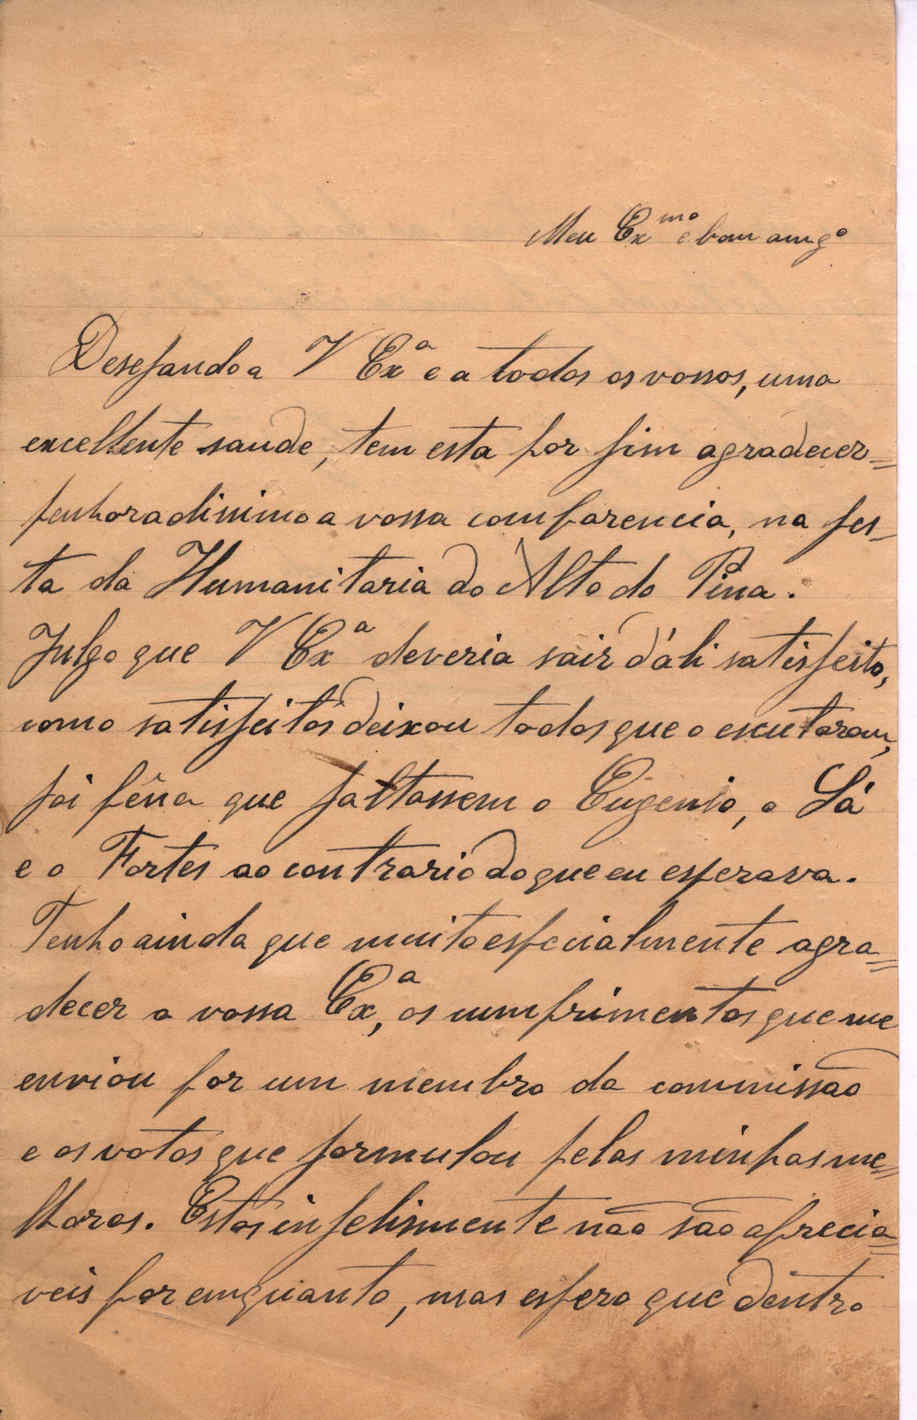 Meu Ex.mo e bom amgo
Desejando a V Exa e a todos os vossos, uma
excellente saude, tem esta por fim agradecer=
penhoradissimo a vossa comparencia, na fes=
ta da Humanitaria do Alto do Pina.
Julgo que V Exa deveria sair d'áli satisfeito,
como satisfeitos deixou todos que o escutaram,
foi pêna que faltassem o Eugenio, o Sá
e o Fortes ao contrario do que eu esperava.
Tenho ainda que muito especialmente agra=
decer a vossa Exa, os cumprimentos que me
enviou por um membro da commissão
e os votos que formulou pelas minhas me=
lhoras. Estas infelismente não são aprecia=
veis por emquanto, mas espero que dentro